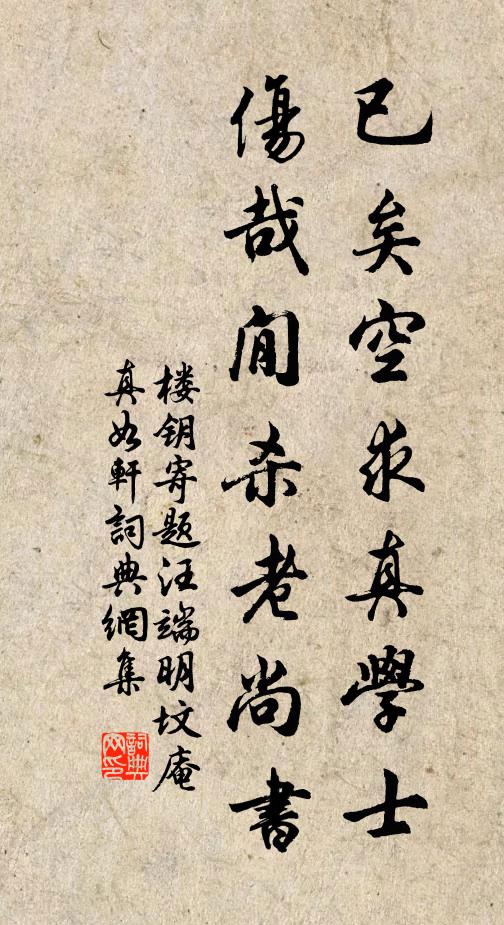 已矣空求真學士
傷哉閒杀老尚書
楼钥寄题汪端明坟庵
真如軒詞典網集
詞典
网印